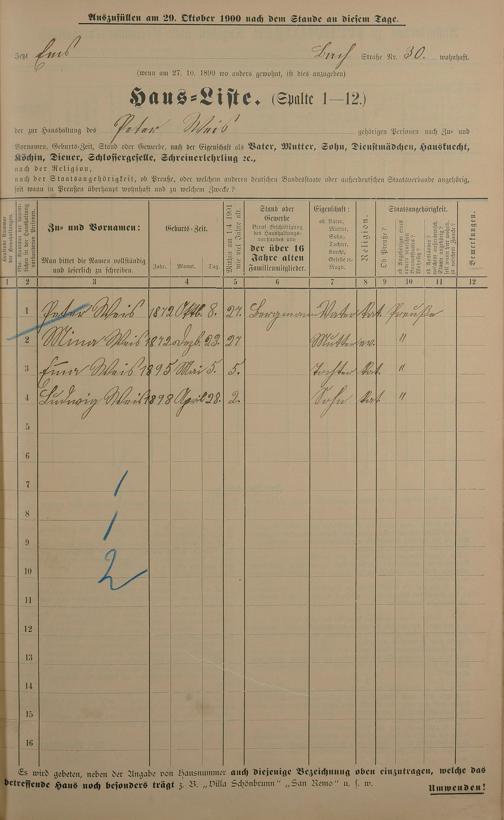 Auszufüllen am 29. Oktober 1900 nach dem Stande an diesem Tage.
Jetzt Ems Bach Straße Nr. 30. wohnhaft.
(wenn am 27. 10. 1899 wo anders gewohnt, ist dies anzugeben)
Haus-Liste. (Spalte 1—12.)
der zur Haushaltung des Peter Weis gehörigen Personen nach Zu- und
Vornamen, Geburts-Zeit, Stand oder Gewerbe, nach der Eigenschaft als Vater, Mutter, Sohn, Dienstmädchen, Hausknecht,
Köchin, Diener, Schlossergeselle, Schreinerlehrling ꝛc.,
nach der Religion,
nach der Staatsangehörigkeit, ob Preuße, oder welchem anderen deutschen Bundesstaate oder außerdeutschen Staatsverbande angehörig,
seit wann in Preußen überhaupt wohnhaft und zu welchem Zwecke?
Zu- und Vornamen:
Man bittet die Namen vollständig
und leserlich zu schreiben.
Geburts-Zeit.
Jahr. Monat. Tag.
Mithin am 1/4 1901
wie viel Jahre alt
Stand oder
Gewerbe
der über 16
Jahre alten
Familienmitglieder.
Eigenschaft:
ob Vater,
Mutter,
Sohn,
Tochter,
Knecht,
Geselle oder
Magd.
Religion.
Staatsangehörigkeit.
Ob Preuße?
Bemerkungen.
1 2 3 4 5 6 7 8 9 10 11 12
1 Peter Weis 1872 Oktb. 8. 27. Bergmann Vater kat Preuße
2 Mina Weis 1872 Dezb. 22. 27 Mutter ev. "
3 Ema Weis 1895 Mai 5. 5. Tochter kat. "
4 Ludwig Weis 1898 April 28. 2. Sohn kat "
5
6
7
8
9
10
11
12
13
14
15
16
1
1
2
Es wird gebeten, neben der Angabe von Hausnummer auch diejenige Bezeichnung oben einzutragen, welche das
betreffende Haus noch besonders trägt z. B. „Villa Schönbrunn" „San Remo" u. s. w.
Umwenden!